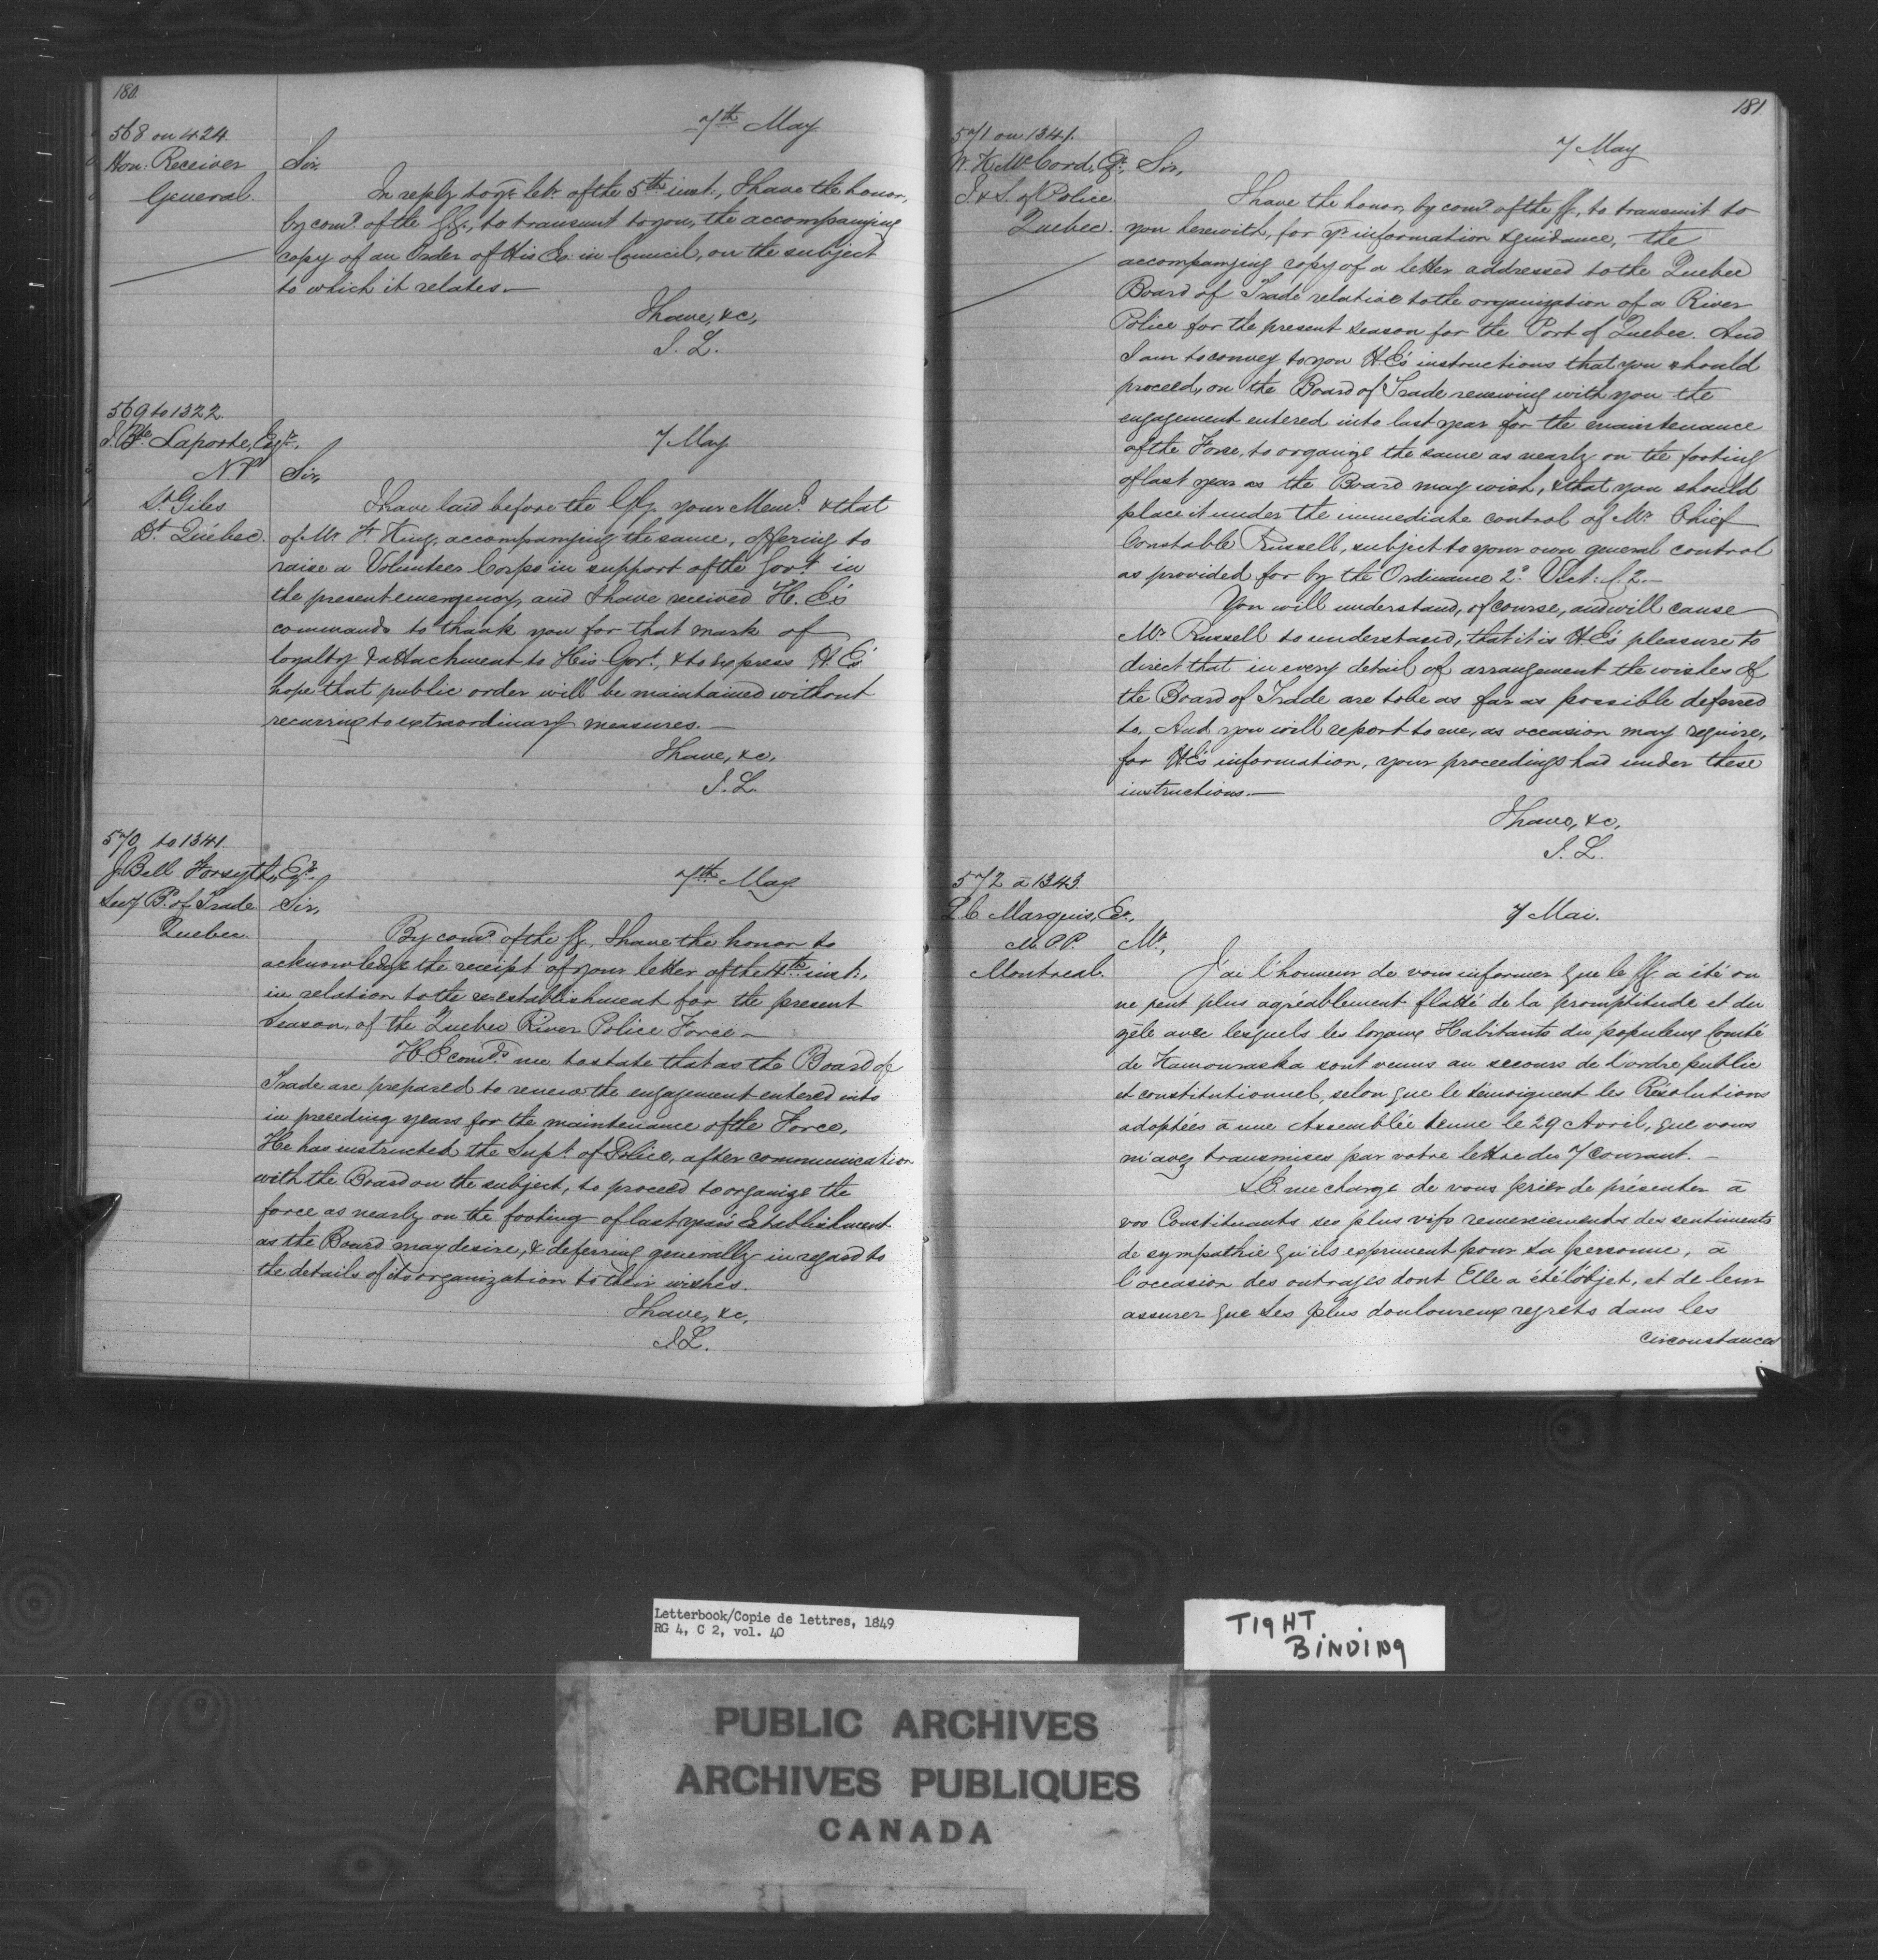 180.
7th May
568 on 424.
Hon: Receiver
General.
Sir,
In reply to yr letr of the 5th inst., I have the honor,
by comd of the GG., to transmit to you, the accompanying
copy of an Order of His Ex. in Council, on the subject
to which it relates.—
I have, &c,
J. L.
569 to 1322.
J. Bte Laporte, Esqr,
N.P.
St Giles
Dt Québec.
7 May
Sir,
I have laid before the GG. your Meml & that
of Mr King, accompanying the same, offering to
raise a Volunteer Corps in support of the Govt in
the present emergency, and I have received H. E's
commands to thank you for that mark of
loyalty & attachment to His Govt, & to express H. E's
hope that public order will be maintained without
recurring to extraordinary measures.—
I have, &c,
J. L.
570 to 1341.
J. Bell Forsyth, Er.
Secy B. of Trade
Quebec.
7th May
Sir,
By comd of the GG, I have the honor to
acknowledge the receipt of your letter of the 4th inst.,
in relation to the reestablishment for the present
Season, of the Quebec River Police Force—
H. E. comds me to state that as the Board of
Trade are prepared to renew the engagement entered into
in preceding years for the maintenance of the Force,
He has instructed the Supt of Police, after communication
with the Board on the subject, to proceed to organize the
force as nearly on the footing of last year's Establishment
as the Board may desire, & deferring generally in regard to
the details of its organization to their wishes.
I have, &c,
J. L.
181
571 on 1341.
W. K. McCord, Er,
I & S. of Police
Quebec.
7 May
Sir,
I have the honor, by comd of the GG, to transmit to
you herewith, for yr information & guidance, the
accompanying copy of a letter addressed to the Quebec
Board of Trade relative to the organization of a River
Police for the present season for the Port of Quebec. And
I am to convey to you H. E's instructions that you should
proceed, on the Board of Trade renewing with you the
engagement entered into last year for the maintenance
of the Force, to organize the same as nearly on the footing
of last year as the Board may wish, & that you should
place it under the immediate control of Mr Chief
Constable Russell, subject to your own general control
as provided for by the Ordinance 2o Vict: c. 2.—
You will understand, of course, and will cause
Mr Russell to understand, that it is H. E's pleasure to
direct that in every detail of arrangement the wishes of
the Board of Trade are to be as far as possible deferred
to. And you will report to me, as occasion may require,
for H. E's information, your proceedings had under these
instructions.—
I have, &c,
J. L.
572 à 1343.
Marquis, Er,
M.P.P.
Montreal.
7 Mai.
Mr,
J'ai l'honneur de vous informer que le GG. a été on
ne peut plus agréablement flatté de la promptitude et du
zèle avec lesquels les loyaux Habitants du populeux Comté
de Kamouraska sont venus au secours de l'ordre public
et constitutionnel, selon que le témoignent les Résolutions
adoptées à une Assemblée tenue le 29 Avril, que vous
m'avez transmises par votre lettre du 7 Courant.—
S. E. me charge de vous prier de présenter à
vos Constituants ses plus vifs remerciements des sentiments
de sympathie qu'ils expriment pour Sa personne, à
l'occasion des outrages dont Elle a été l'objet, et de leur
assurer que Ses plus douloureux regrets dans les
circonstances
Letterbook/Copie de lettres, 1849
RG 4, C 2, vol. 40
TIGHT
BINDING
PUBLIC ARCHIVES
ARCHIVES PUBLIQUES
CANADA